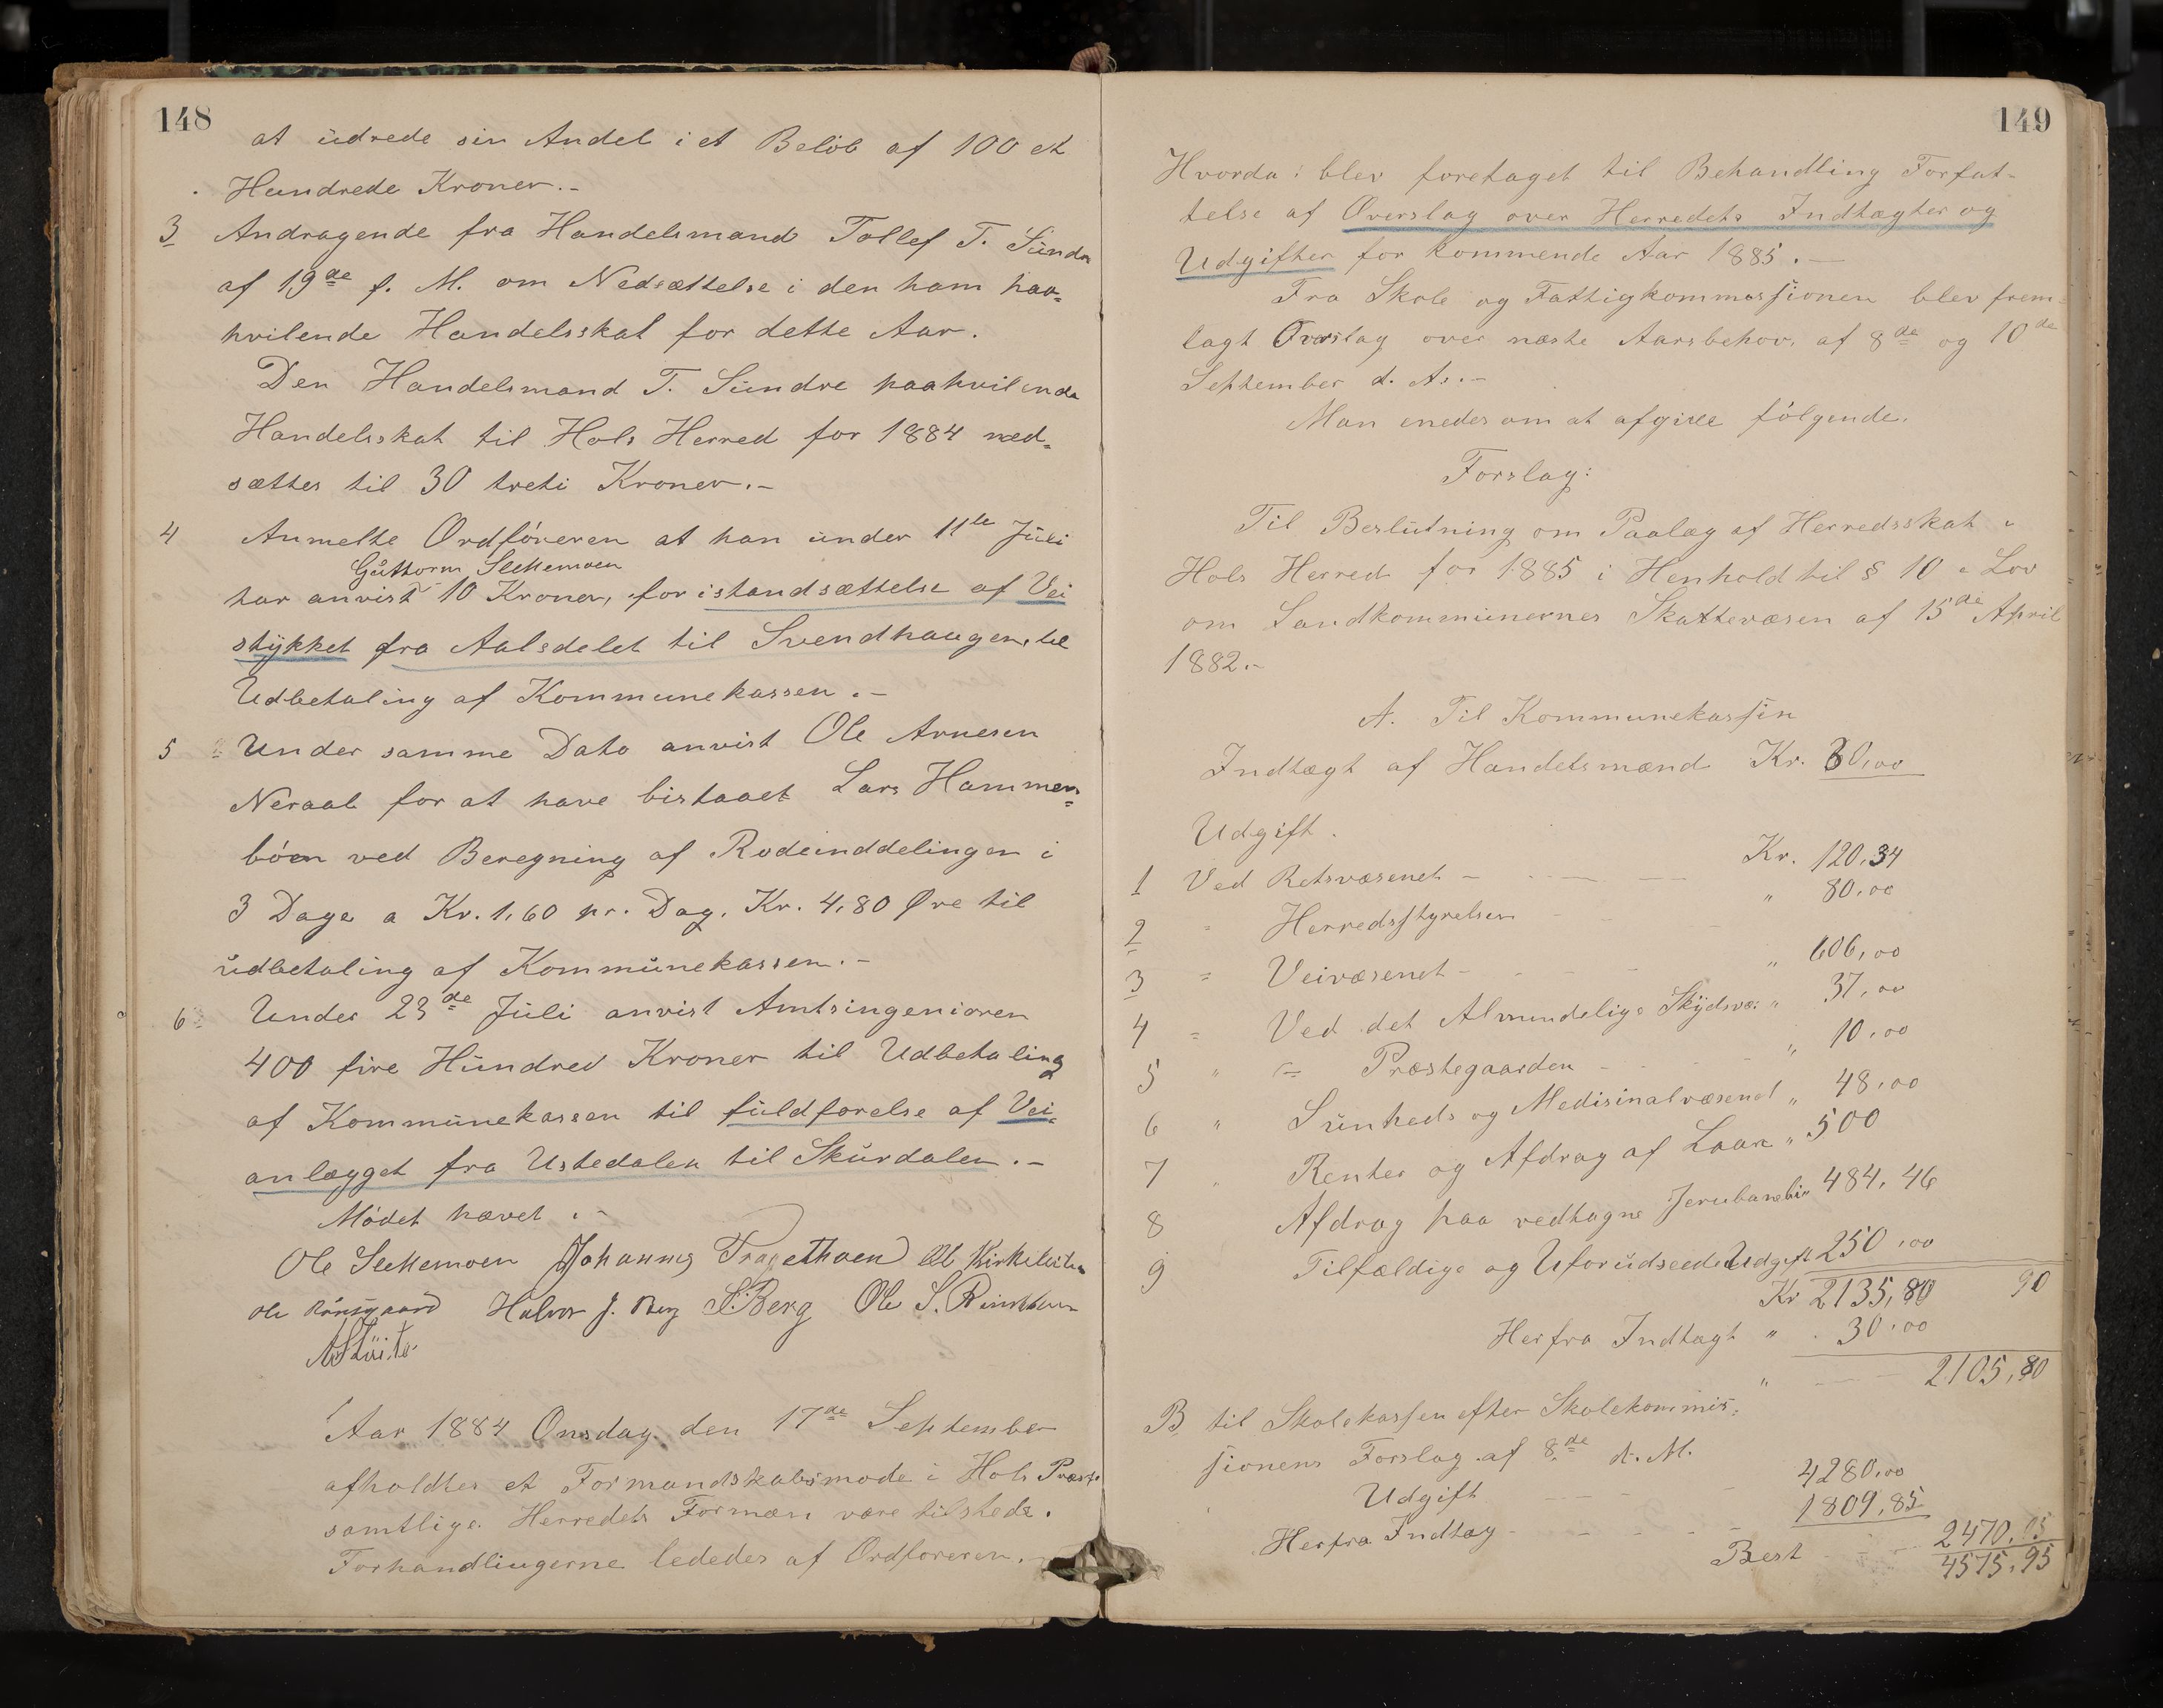 148
at üdrede sin Andel i et Beløb af 100 et
Hundrede Kroner.-
3 Andragende fra Handelsmand Tollef T. Sündre
af 19de f. M. om Nedsættelse i den ham paa=
hvilende Handelsskat for dette Aar.
Den Handelsmand T. Sündre paahvilende
Handelsskat til Hols Herred for 1884 ned=
sættes til 30 treti Kroner.-
4 Anmelte Ordføreren at han ünder 11te Jüli
Güttorm Slettemoen
har anvist 10 Kroner, for istandsættelse af Vei
stykket fra Aalsdelet til Svendhaugen, til
Udbetaling af Kommunekassen.-
5 Under samme Dato anvist Ole Arnesen
Neraal for at have bistaaet Lars Hammers=
bøen ved Beregning af Rodeinddelingen i
3 Dage a Kr. 1,60 pr. Dag. Kr. 4,80 Øre til
üdbetaling af Kommünekassen.-
6 Under 23de Jüli anvist Amtsingeniøren
400 fire Hündred Kroner til Udbetaling
af Kommünekassen til füldførelse af Vei=
anlægget fra Ustedalen til Skürdalen.-
Mødet hævet.-
Ole Slettemoen Johannes Tragethoen Ole Kirkebøiten
Ole Rønsgaard Halvor J. Berg S. Berg Ole S.
Aar 1884 Onsdag den 17de September
afholdtes et Formandskabsmøde i Hols Præst.
samtlige Herredets Formæn vare tilstede.
Forhandlingerne lededes af Ordføreren.-
149
Hvorda: blev foretaget til Behandling Forfat-
telse af Overslag over Herredets Indtægter og
Udgifter for kommende Aar 1885.-
Fra Skole og Fattigkommassionen blev frem-
lagt Overslag over næste Aarsbehov af 8de og 10de
September d. A.-
Man enedes om at afgive følgende.
Forslag:
Til Beslütning om Paalæg af Herredsskat i
Hols Herred for 1885 i Henhold til § 10 i Lov
om Landkommünernes Skattevæsen af 15de April
1882.-
A. Til Kommunekassen
Indtægt af Handelsmænd Kr. 30,00
Udgift.
1 Ved Retsvæsenet - Kr. 120,34
2 " Herredsstyrelsen " 80,00
3 " Veivæsenet - " 606,00
4 " Ved det Almindelige Skydsvæ: " 37,00
5 " " Præstegaarden " 10,00
6 " Sünheds og Medisinalvæsend " 48,00
7 " Renter og Afdrag af Laan " 500
8 Afdrag paa vedtagne Jernbanebi" 484,46
9 Tilfældige og Uforüdseede Udgift 250,00
Kr 2135,80 90
Herfra Indtægt " 30,00
" 2105,80
B til Skolekassen efter Skolekommis=
sionens Forslag af 8de d. M.
Udgift 4280,00
Herfra Indtæg - 1809,85
2470,05
Best 4575,95